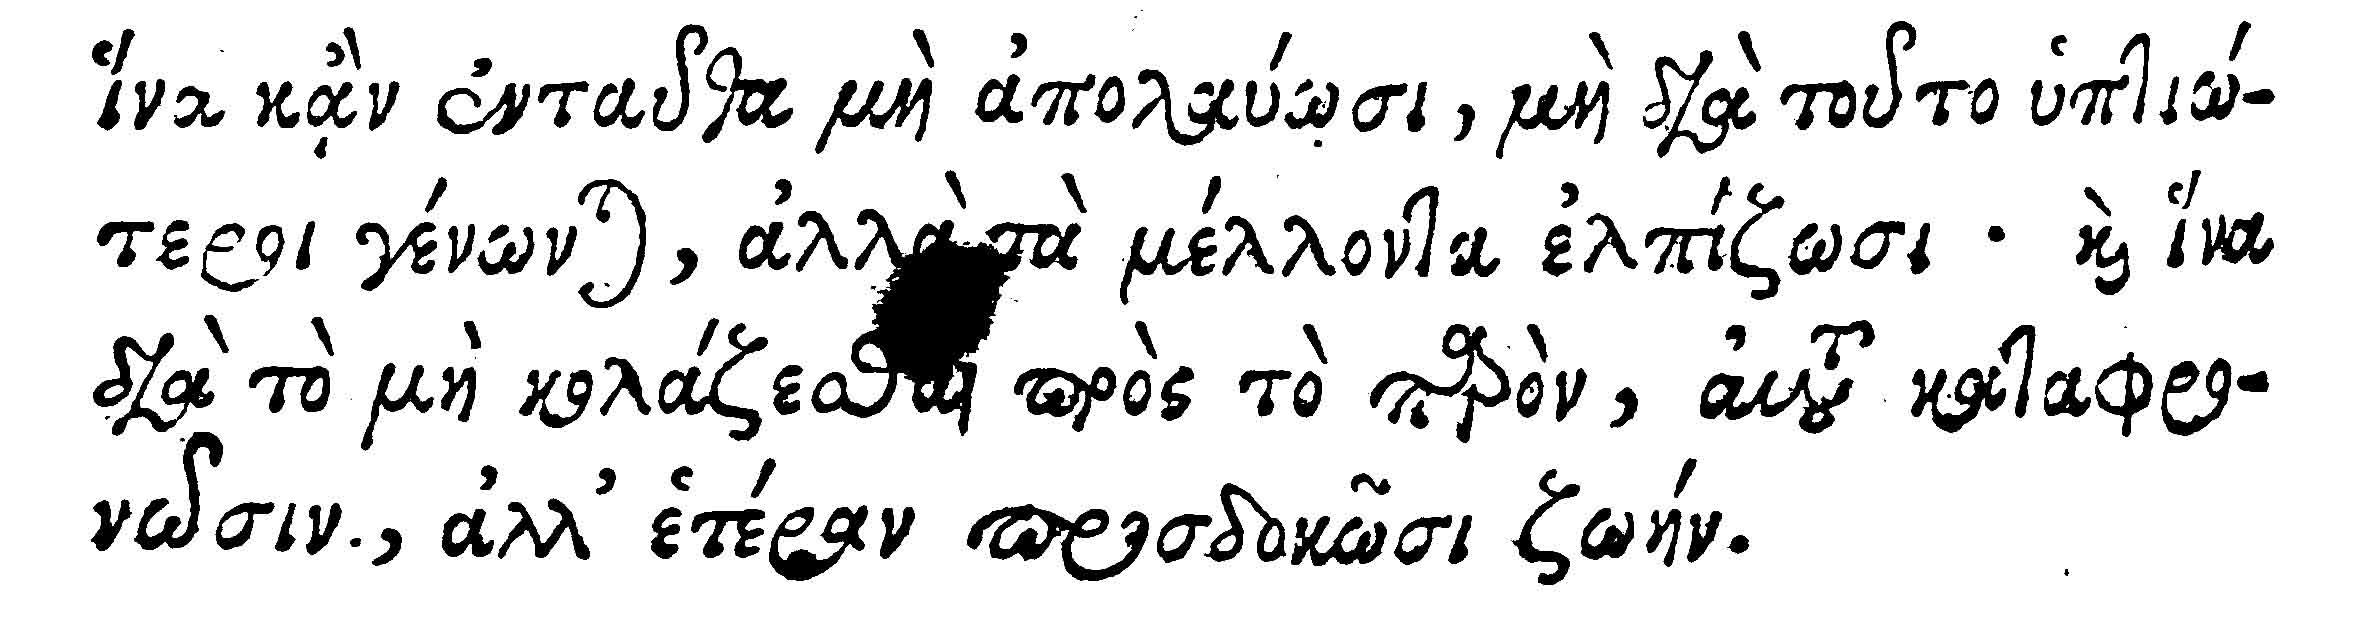 ἵνα κᾂν ἐνταῦθα μὴ ἀπολαύωσι, μὴ διὰ τοῦτο ὑπτιώ-
τεροι γένωνται, ἀλλὰ τὰ μέλλοντα ἐλπίζωσι · καὶ ἵνα
διὰ τὸ μὴ κολάζεσθαι πρὸς τὸ παρὸν, αὐτοῦ καταφρο-
νῶσιν., ἀλλ' ἑτέραν προσδοκῶσι ζωήν.